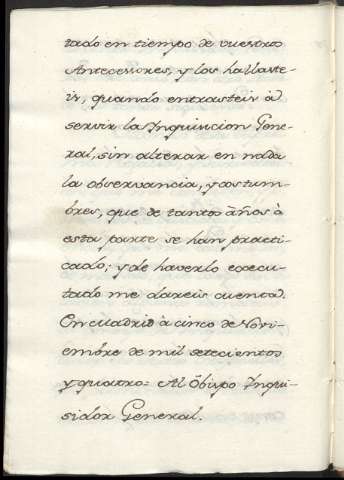 tado en tiempo de vuestros
Antecessores, y los hallaste-
is, quando entrasteis à
servir la Inquisicion Gene-
ral, sin alterar en nada
la observancia, y costum-
bres, que de tantos años à
esta parte se han practi-
cado; y de haverlo execu-
tado me dareis cuenta.
En Madrid à cinco de Novi-
embre de mil setecientos
y quatro: Al Obispo Inqui-
sidor General.